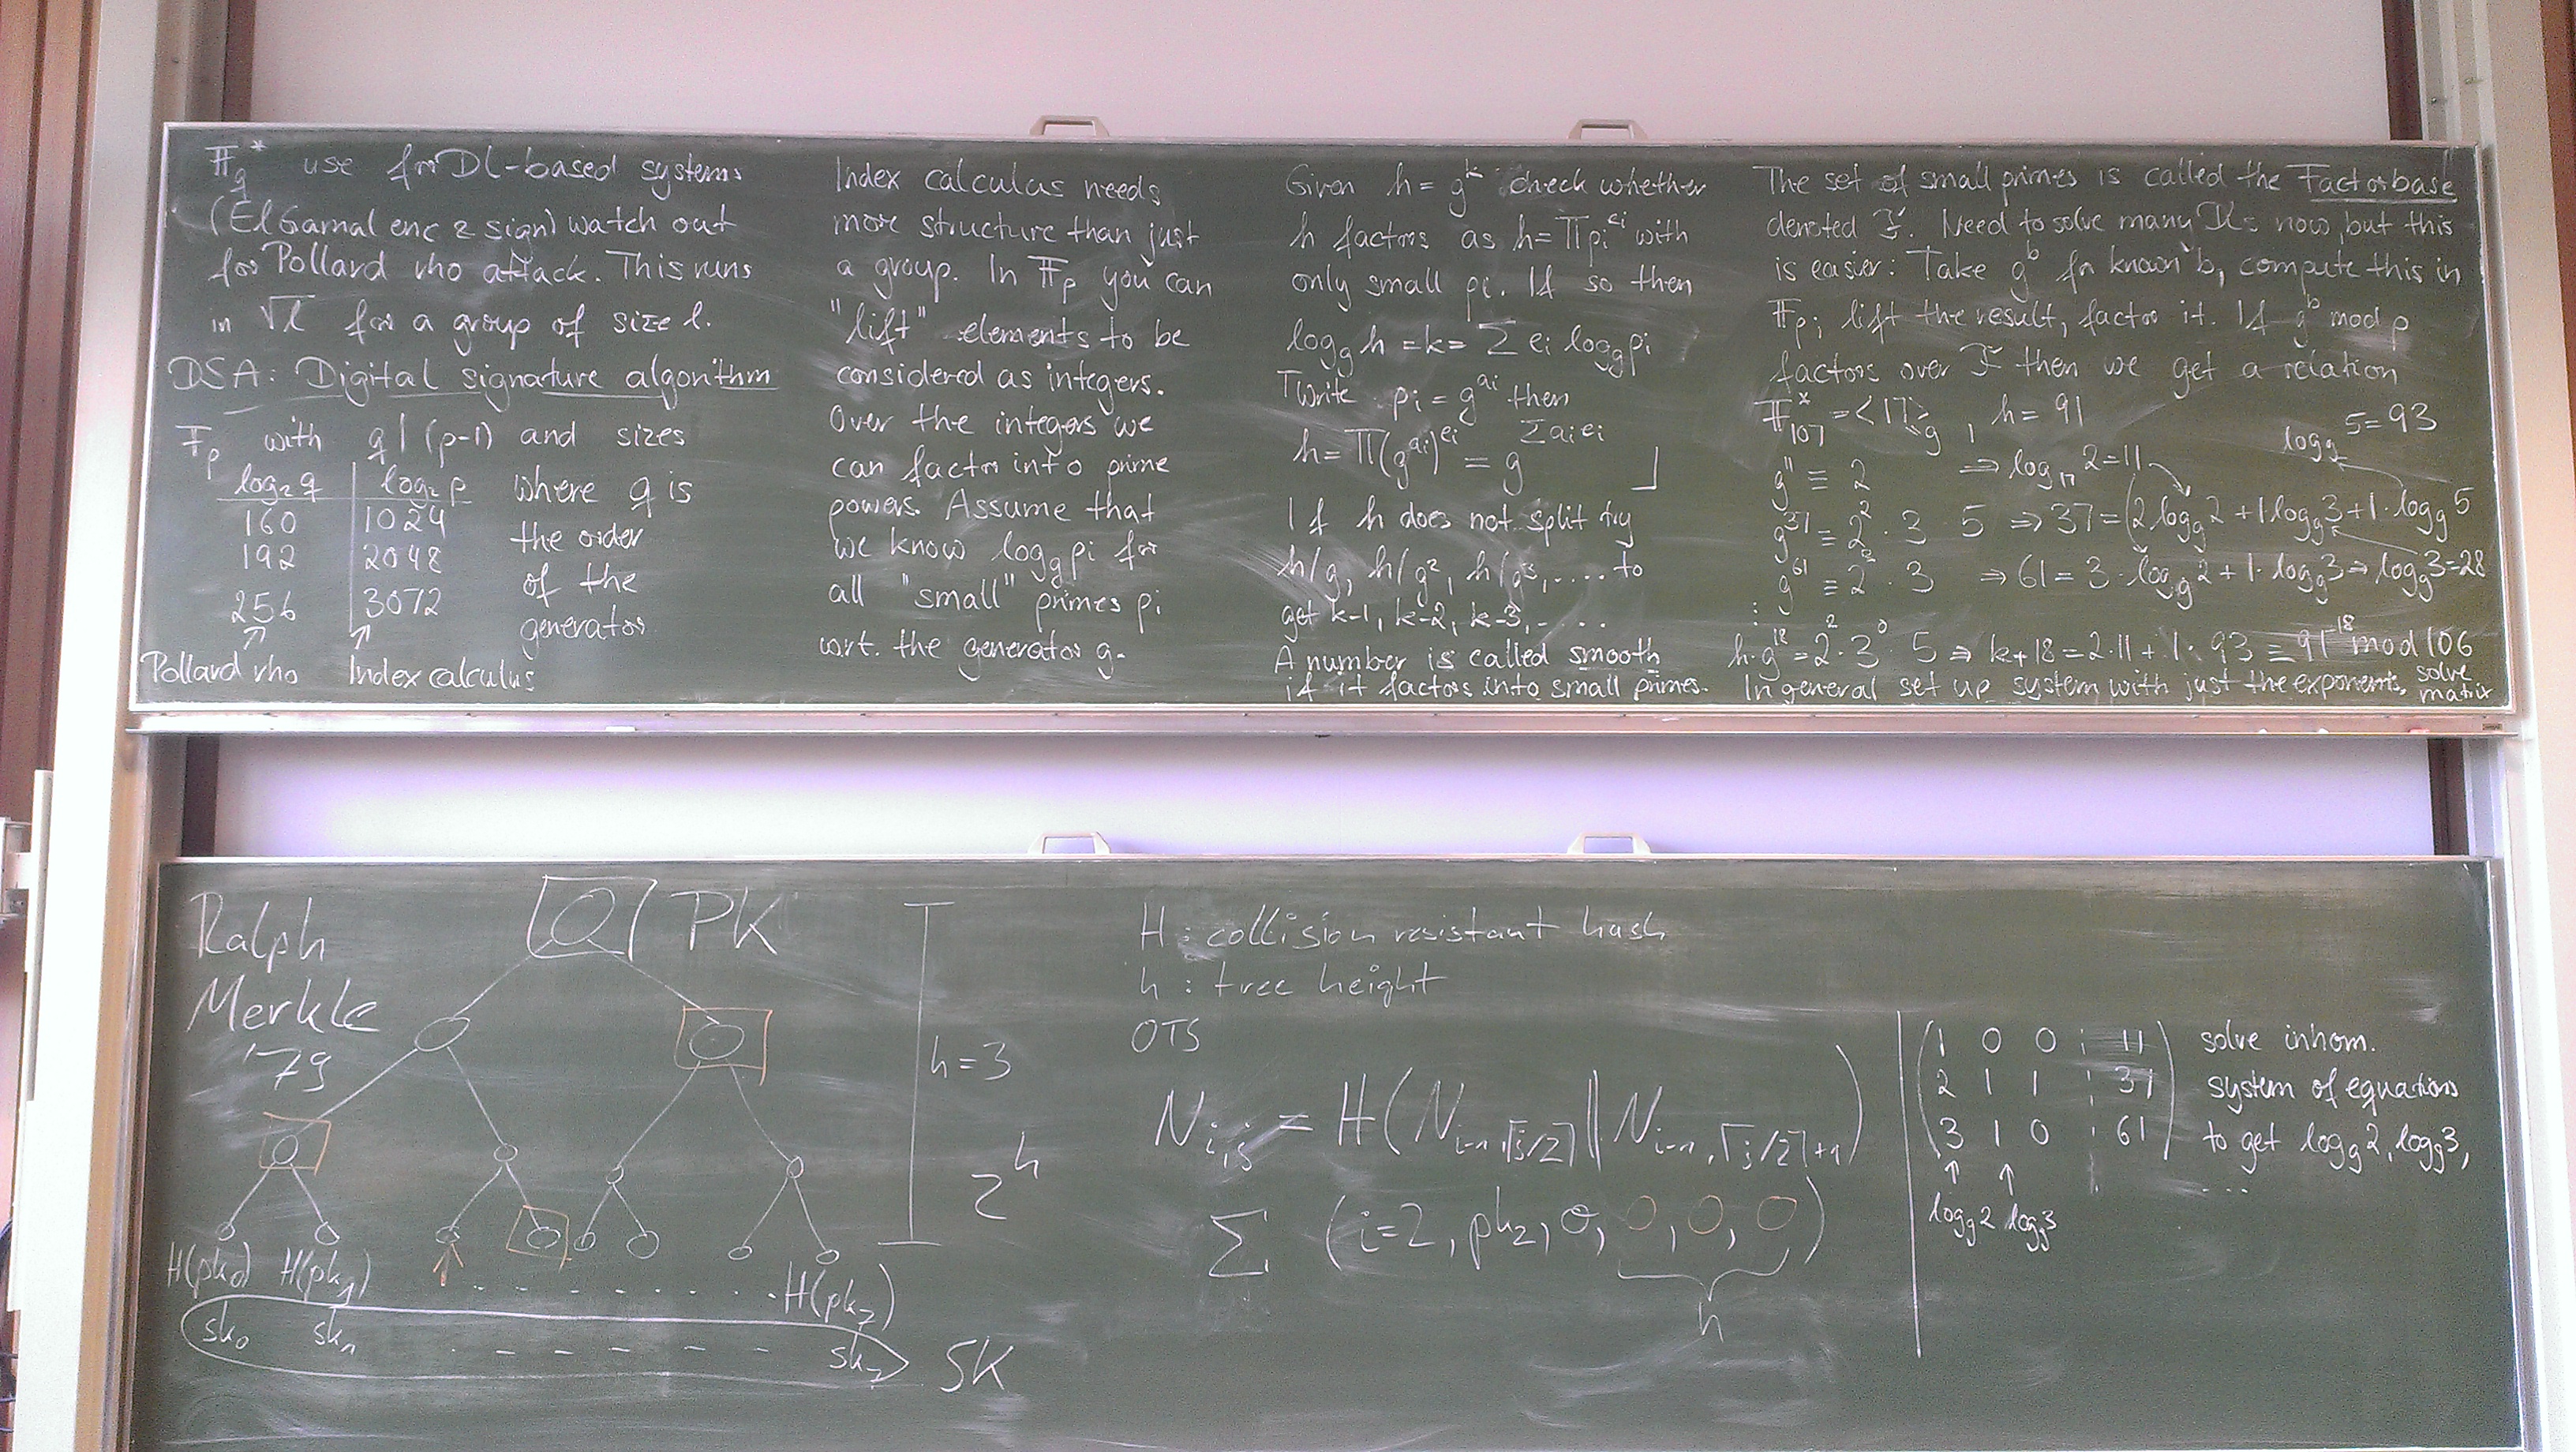 𝔽q* use for Dl-based systems
(ElGamal enc & sign) watch out
for Pollard rho attack. This runs
in √l for a group of size l.
DSA: Digital signature algorithm
𝔽p with q | (p-1) and sizes
log₂ q | log₂ p where q is
160 | 1024 the order
192 | 2048 of the
256 | 3072 generator
Pollard rho Index calculus
Index calculus needs
more structure than just
a group. In 𝔽p you can
"lift" elements to be
considered as integers.
Over the integers we
can factor into prime
powers. Assume that
we know log_g pi for
all "small" primes pi
wrt. the generator g.
Given h = g^k check whether
h factors as h = Π pi^ei with
only small pi. If so then
log_g h = k = Σ ei log_g pi
⌈Write pi = g^ai then
h = Π(g^ai)^ei = g^Σaiei ⌋
If h does not split try
h/g, h/g², h/g³, .... to
get k-1, k-2, k-3, ....
A number is called smooth
if it factors into small primes.
The set of small primes is called the Factorbase
denoted ℱ. Need to solve many DLs now, but this
is easier: Take g^b for known b, compute this in
𝔽p; lift the result, factor it. If g^b mod p
factors over ℱ then we get a relation
𝔽*107 = <17> g, h = 91 log_g 5 = 93
g^11 ≡ 2 ⇒ log_17 2 = 11
g^37 ≡ 2² · 3 · 5 ⇒ 37 = (2 log_g 2 + 1 log_g 3 + 1 · log_g 5
g^61 ≡ 2³ · 3 ⇒ 61 = 3 · log_g 2 + 1 · log_g 3 ⇒ log_g 3 = 28
⋮
h·g^18 = 2² · 3⁰ · 5 ⇒ k+18 = 2·11 + 1 · 93 ≡ 91^18 mod 106
In general set up system with just the exponents, solve matrix
Ralph
Merkle
'79
PK
h = 3
2^h
H(pk₀) H(pk₁) . . . . . . . . H(pk₇)
sk₀ sk₁ - - - - - - sk₇ SK
H : collision resistant hash
h : tree height
OTS
N_i,j = H(N_i-1,⌈j/2⌉ ‖ N_i-1,⌈j/2⌉+1)
Σ (i=2, pk₂, σ, O, O, O)
h
(1 0 0 ¦ 11) solve inhom.
2 1 1 ¦ 37 system of equations
(3 1 0 ¦ 61) to get log_g 2, log_g 3,
↑ ↑ ...
log_g 2 log_g 3